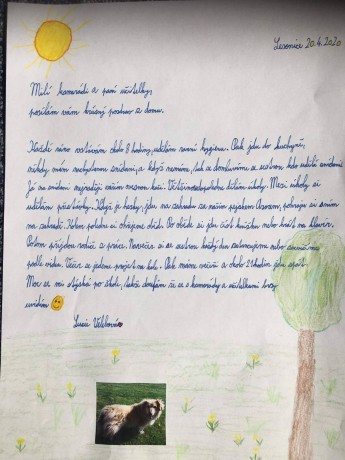 Lesonice 20.4.2020
Milí kamarádi a paní učitelky,
posílám vám krásný pozdrav z domu.
Každé ráno vstávám okolo 8 hodiny, udělám ranní hygienu. Pak jdu do kuchyně,
někdy mám nachystanou snídani, a když nemám, tak se domluvíme se sestrou, kdo udělá snídani.
Já na snídani nejraději vařím ovesnou kaši. dělám úkoly. Mezi úkoly si
udělám přestávky. Když je hezky, jdu na zahradu za naším pejskem pohraju si s ním
na zahradě. Kolem poledne si ohřejeme oběd. Po obědě si jdu číst knížku nebo hrát na klavír.
Potom přijdou rodiče z práce. Navečer si se sestrou
podle videa. Večer se jedeme projet na kole. Pak máme večeři a okolo 21 hodin jdu spát.
Moc se mi stýská po škole, takže doufám že se s kamarády a učitelkami brzy
uvidím
Lucie